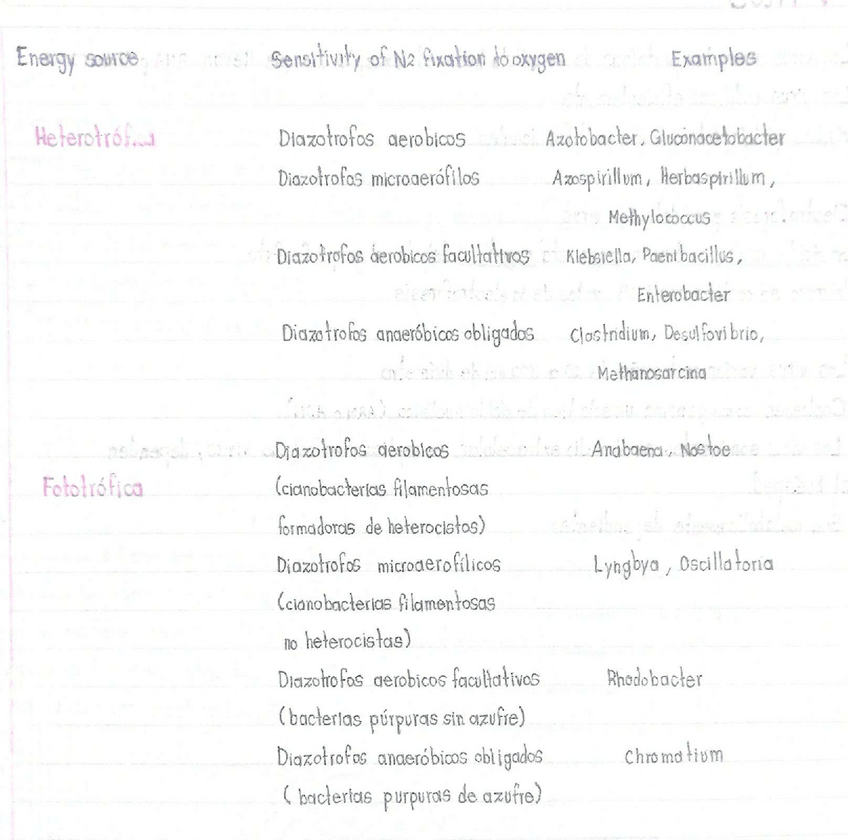 Energy source Sensitivity of N2 fixation to oxygen Examples
Diazotrofos aerobicos Azotobacter, Gluconacetobacter
Diazotrofos microaerófilos Azospirillum, Herbaspirillum,
Methylococcus
Diazotrofos aerobicos facultativos Klebsiella, Paenibacillus,
Enterobacter
Diazotrofos anaeróbicos obligados Clostridium, Desulfovibrio,
Methanosarcina
Diazotrofos aerobicos Anabaena, Nostoc
Fototrófica (cianobacterias filamentosas
formadoras de heterocistos)
Diazotrofos microaerofílicos Lyngbya, Oscillatoria
(cianobacterias filamentosas
no heterocistas)
Diazotrofos aerobicos facultativos Rhodobacter
(bacterias púrpuras sin azufre)
Diazotrofos anaeróbicos obligados Chromatium
(bacterias purpuras de azufre)